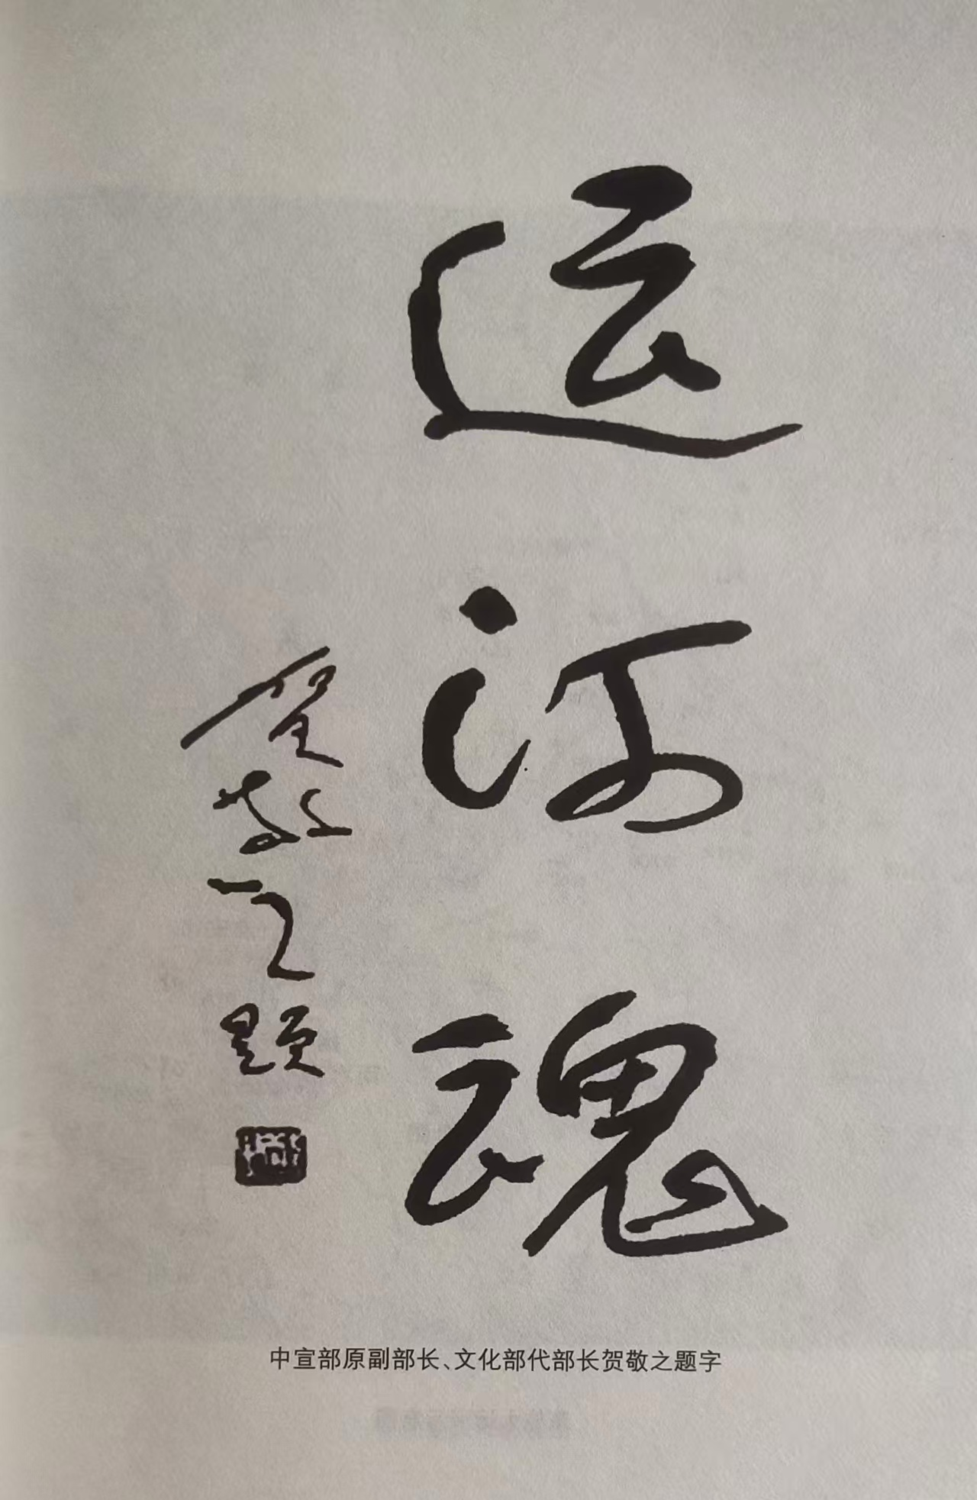 运河魂
贺敬之题
中宣部原副部长、文化部代部长贺敬之题字